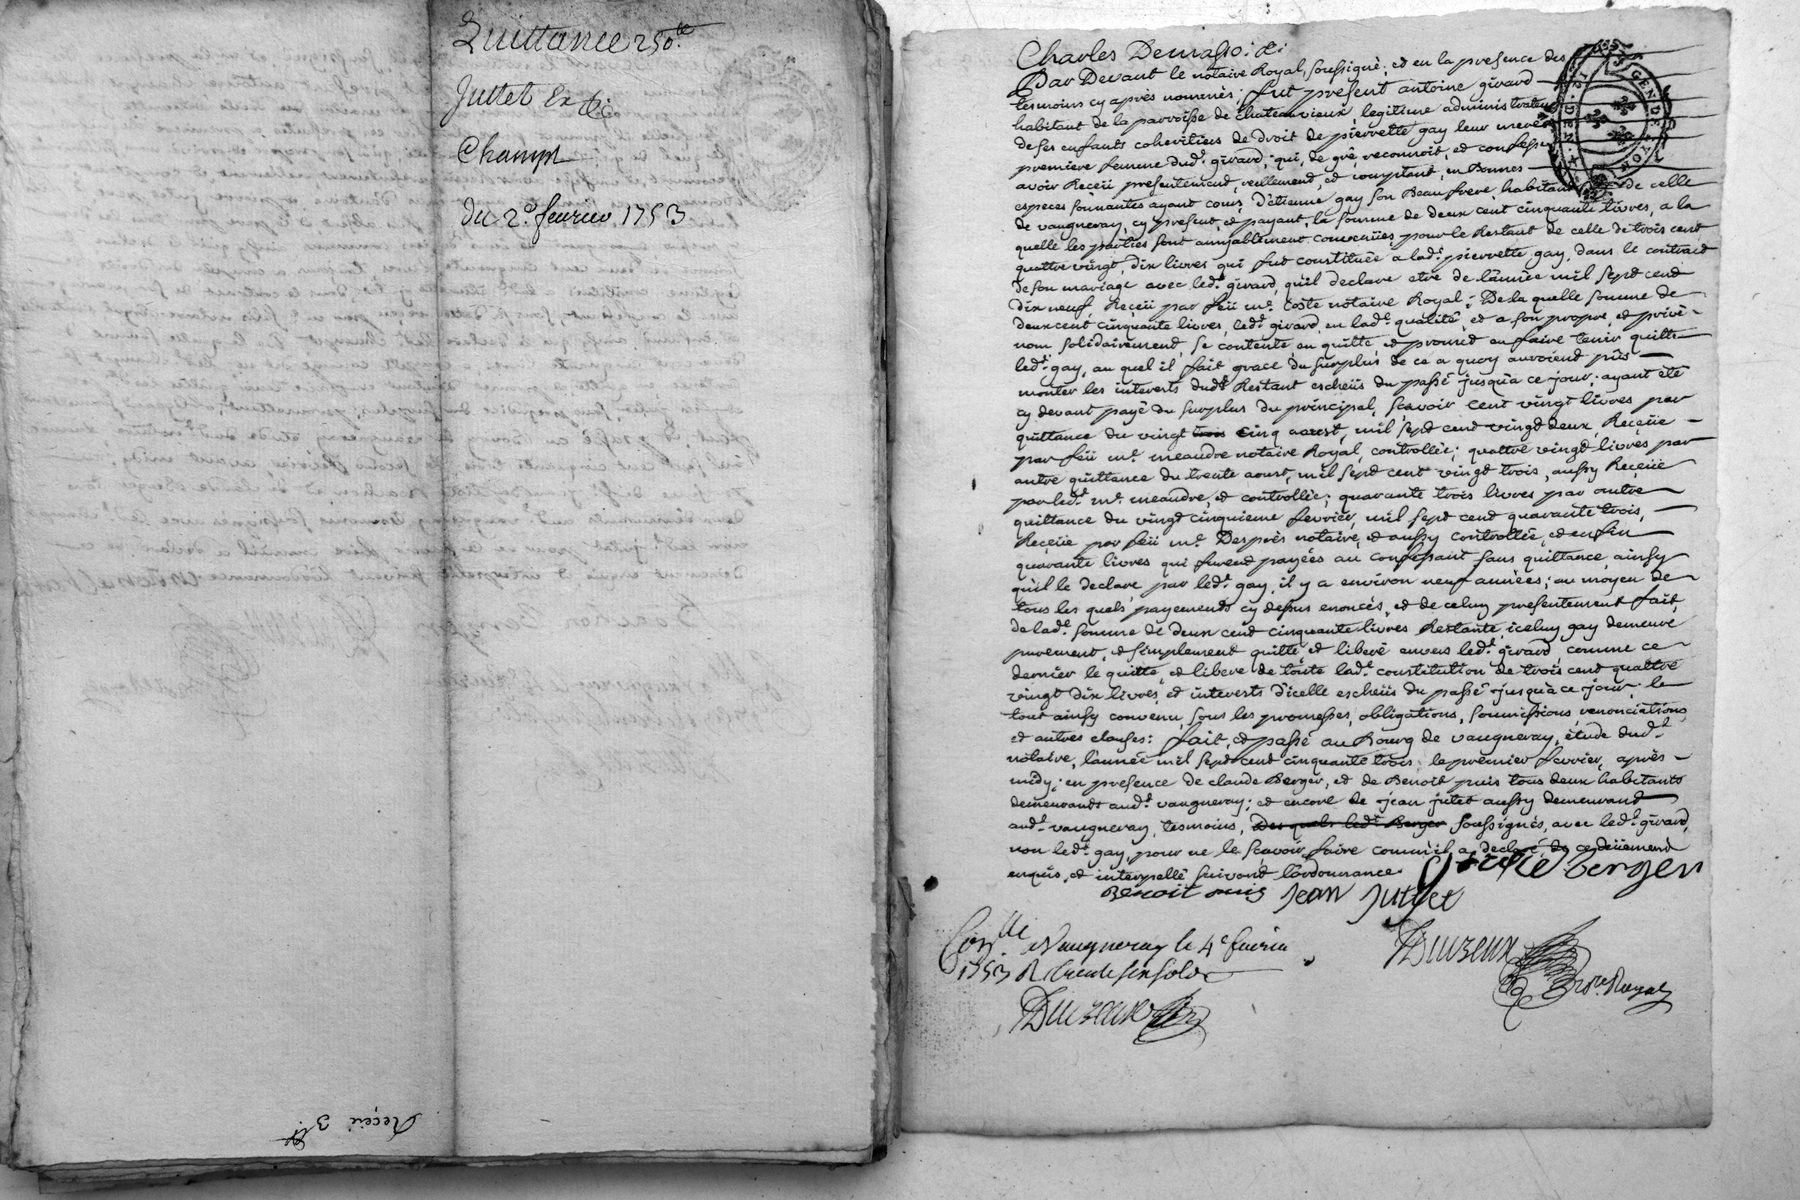 Quittance 250.lt
Juttet &
Champt
du 2.e fevrier 1753
Receu 3 lt
Charles
Par Devant le notaire Royal, soussigné; et en la presence des
tesmoins cy après nommés; fut present antoine girard
habitant de la parroisse de chateauvieux, legitime administrateur
de ses enfants coheritiers de droit de pierrette gay leur mere
premiere femme dud.t girard; qui, de gré, reconnoit, et confesse
avoir Receü presentement, reellement, et comptant, en Bonnes
especes sonnantes ayant cours, d'etienne gay son Beau frere, habitant de celle
de vaugneray, cy present, et payant, la somme de deux cent cinquante livres, a la
quelle les parties sont amiablement convenües pour le Restant de celle de trois cent
quattre vingt, dix livres qui fut constituée a lad.e pierrette gay, dans le contract
de son mariage avec led.t girard, qu'il declare etre de l'année mil sept cent
dix neuf, Receü par feü m.e Coste notaire Royal; De la quelle somme de
deux cent cinquante livres, led.t girard, en lad.e qualité, et a son propre, et privé
nom solidairement, se contente en quitte et promet en faire tenir quitte
led.t gay, au quel il fait grace du surplus de ce a quoy auroient pus
monter les interets dud.t Restant escheüs du passé jusqu'a ce jour; ayant été
cy devant payé du surplus du principal, scavoir cent vingt livres par
quittance du vingt trois cinq aoust, mil sept cent vingt deux, Receüe
par feü m.e meandre notaire Royal, controllée; quattre vingt livres par
autre quittance du trente aoust, mil sept cent vingt trois, aussy Receüe
par led.t m.e meandre, et controllée; quarante trois livres par autre
quittance du vingt cinquieme fevrier, mil sept cent quarante trois,
Receüe par feü m.e Desprès notaire, et aussy controllée, et enfin
quarante livres qui furent payées au confessant sans quittance, ainsy
qu'il le declare, par led.t gay, il y a environ neuf années; au moyen de
tous les quels payements cy dessus enoncés, et de celuy presentement fait,
de lad.e somme de deux cent cinquante livres Restante, iceluy gay demeure
purement, et simplement quitte et liberé envers led.t girard comme ce
dernier le quitte, et libere de toute lad.e constitution de trois cent quattre
vingt dix livres, et interets d'icelle escheüs du passé jusqu'a ce jour; le
tout ainsy convenu, sous les promesses, obligations, soumissions, renonciations,
et autres clauses: fait, et passé au Bourg de vaugneray, étude dud.t
notaire, l'année mil sept cent cinquante trois, le premier fevrier, après
midy; en presence de claude Berger, et de Benoit puis tous deux habitants
demeurants aud.t vaugneray; et encore de jean jutet aussy demeurant
aud.t vaugneray, tesmoins, Des quels led.t Berger soussignés, avec led.t girard,
non led.t gay, pour ne le scavoir faire comm'il a declaré de ce deüement
enquis, et interpellé suivant l'ordonnance
berger
Benoit puis Jean Juttet
Con.lle a Vaugneray le 4e fevrier
1753 R trente six sols
Duzeux
Duzeux
n.re Royal